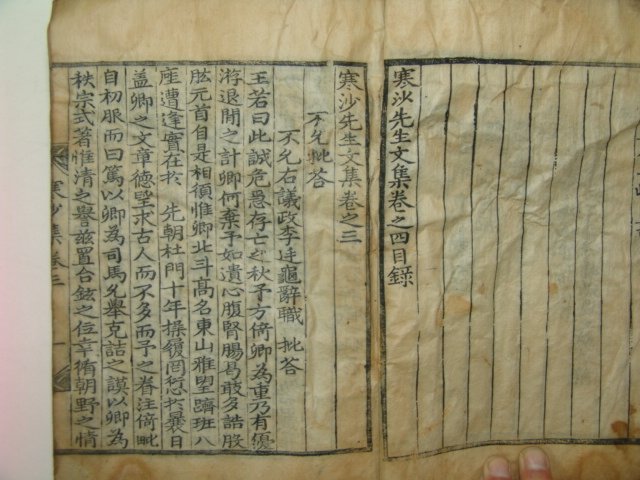 寒沙先生文集卷之四目錄
寒沙先生文集卷之三
不允批答
不允右議政李廷龜辭職 批答
王若曰此誠危急存亡之秋予方倚卿爲重乃有優
游退閒之計卿何棄予如遺心腹腎腸曷敢多誥股
肱元首自是相須惟卿北斗高名東山雅望躋班八
座遭逢實在於 先朝杜門十年操履罔愆於曩日
盖卿之文章德望求古人而不多而予之眷注倚毗
自初服而曰篤以卿為司馬允舉克詰之謨以卿為
秩宗式著惟清之譽玆置台鉉之位幸循朝野之情
寒沙集卷三